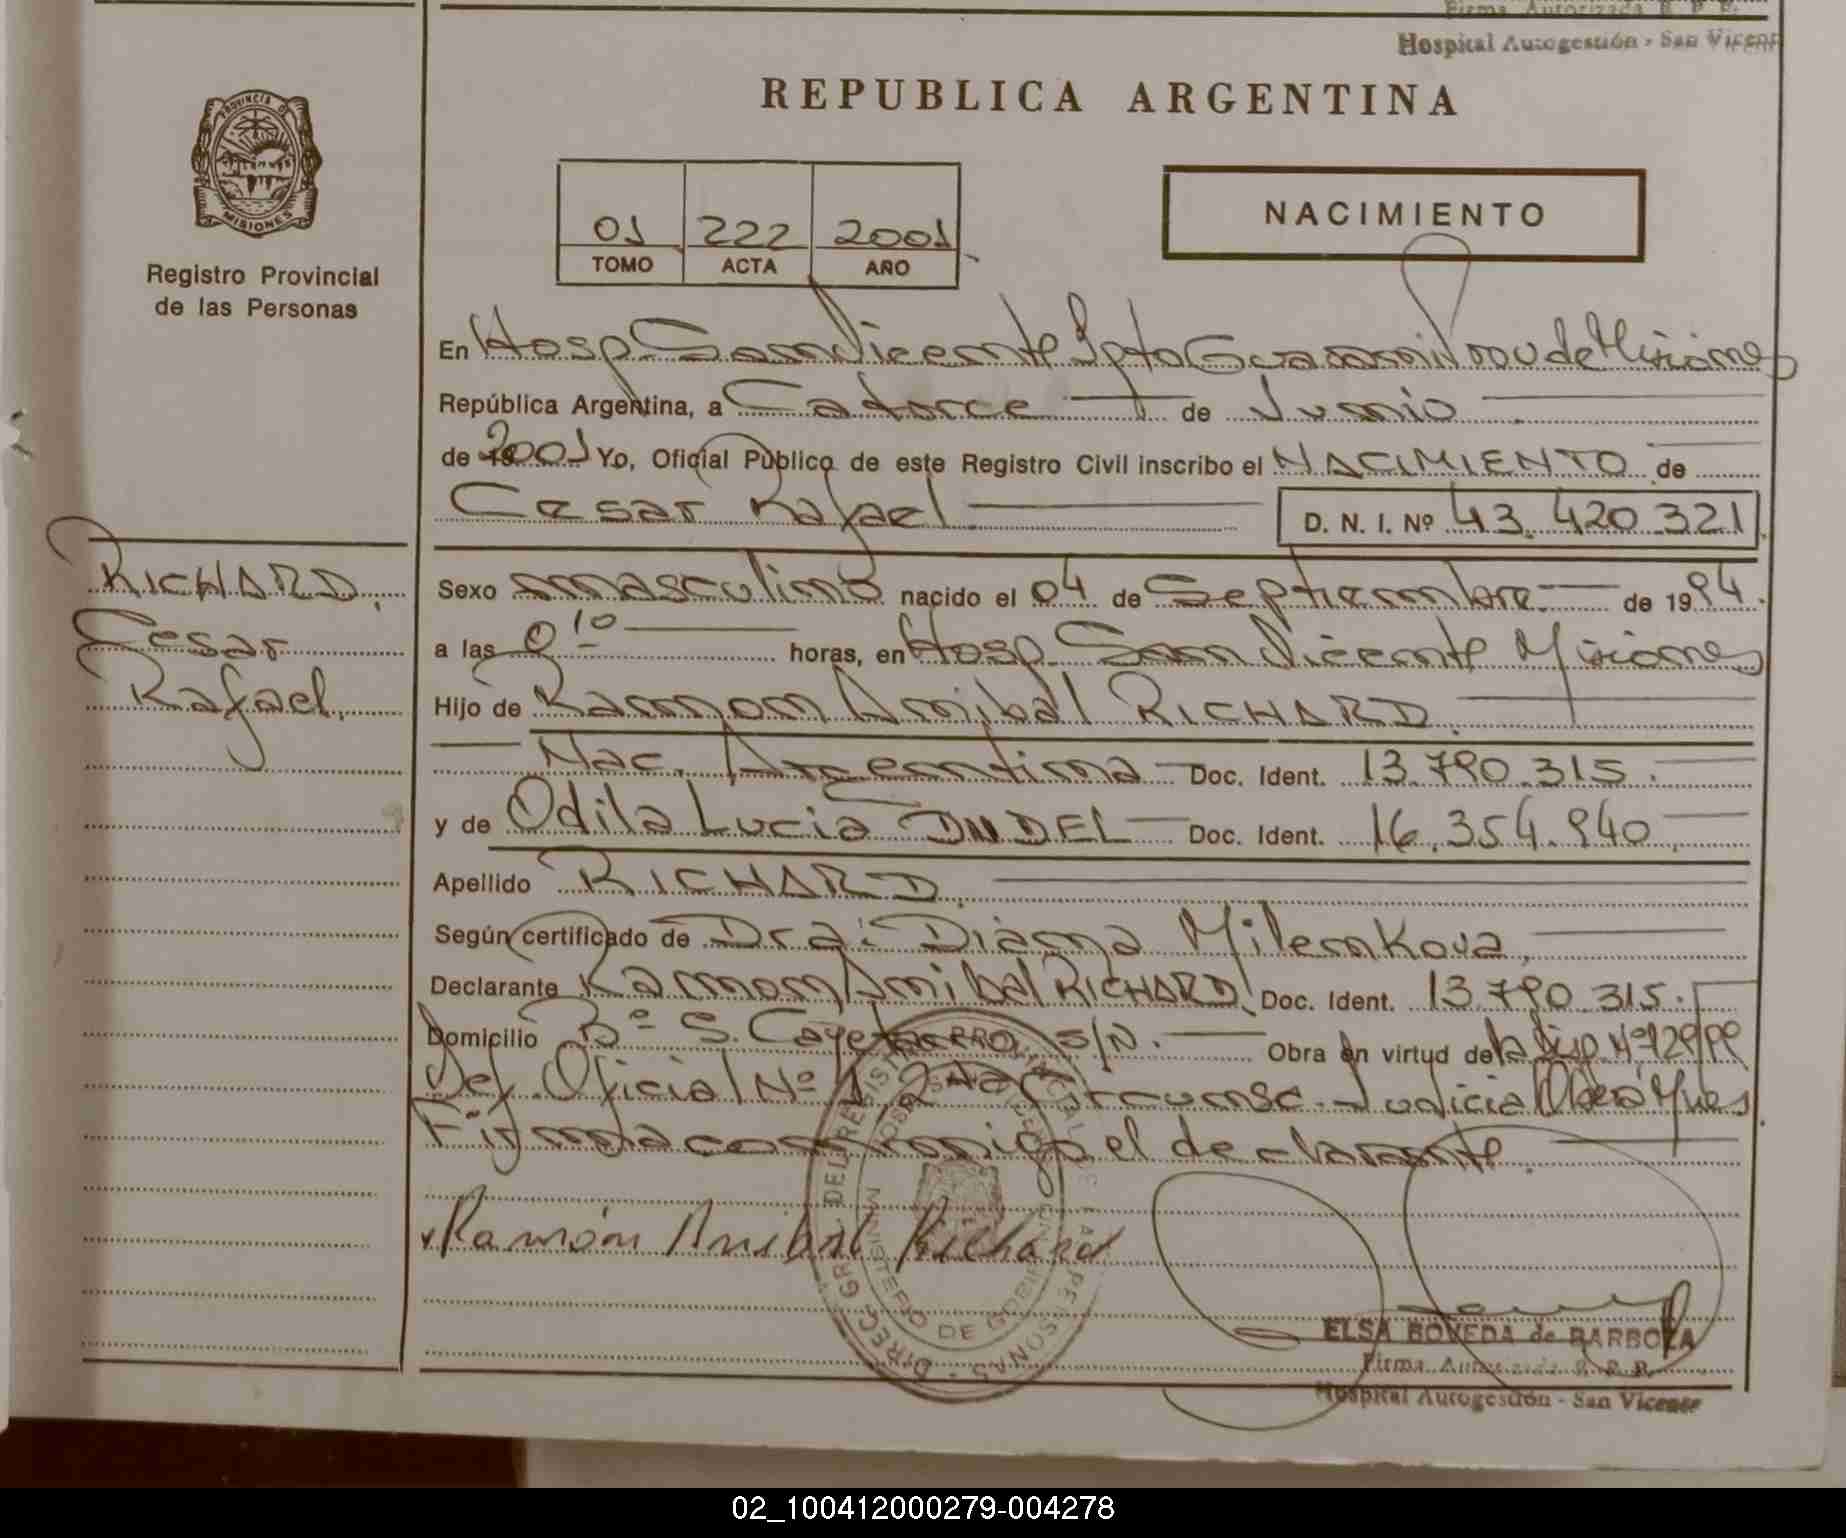 Firma Autorizada R. P. P.
Hospital Autogestión - San Vicente
REPUBLICA ARGENTINA
PROVINCIA DE
MISIONES
Registro Provincial
de las Personas
NACIMIENTO
01 222 2001
TOMO ACTA AÑO
En Hosp. San Vicente Dpto Guaraní Prov de Misiones
República Argentina, a Catorce de Junio
de 2001 Yo, Oficial Público de este Registro Civil inscribo el NACIMIENTO de
Cesar Rafael D. N. I. Nº 43.420.321
RICHARD,
Cesar
Rafael.
Sexo masculino nacido el 04 de Septiembre de 1994.
a las 0¹⁰ horas, en Hosp. San Vicente Misiones
Hijo de Ramon Anibal RICHARD.
Nac. Argentina Doc. Ident. 13.790.315.
y de Odila Lucia Doc. Ident. 16.354.940.
Apellido RICHARD.
Según certificado de Dra. Diana Milenkova,
Declarante Ramon Anibal RICHARD Doc. Ident. 13.790.315.
Domicilio Bº S. Cayetano S/N. Obra en virtud de la Disp. Nº 129/99
Def. Oficial Nº 1, 2da Circunsc. Judicial Oberá Mnes
Firma conmigo el declarante.
Ramón Anibal Richard
DIREC. GRAL. DEL REGISTRO PROVINCIAL DE LAS PERSONAS
MINISTERIO DE GOBIERNO
ELSA BOVEDA de BARBOZA
Firma Autorizada R. P. P.
Hospital Autogestión - San Vicente
02_100412000279-004278